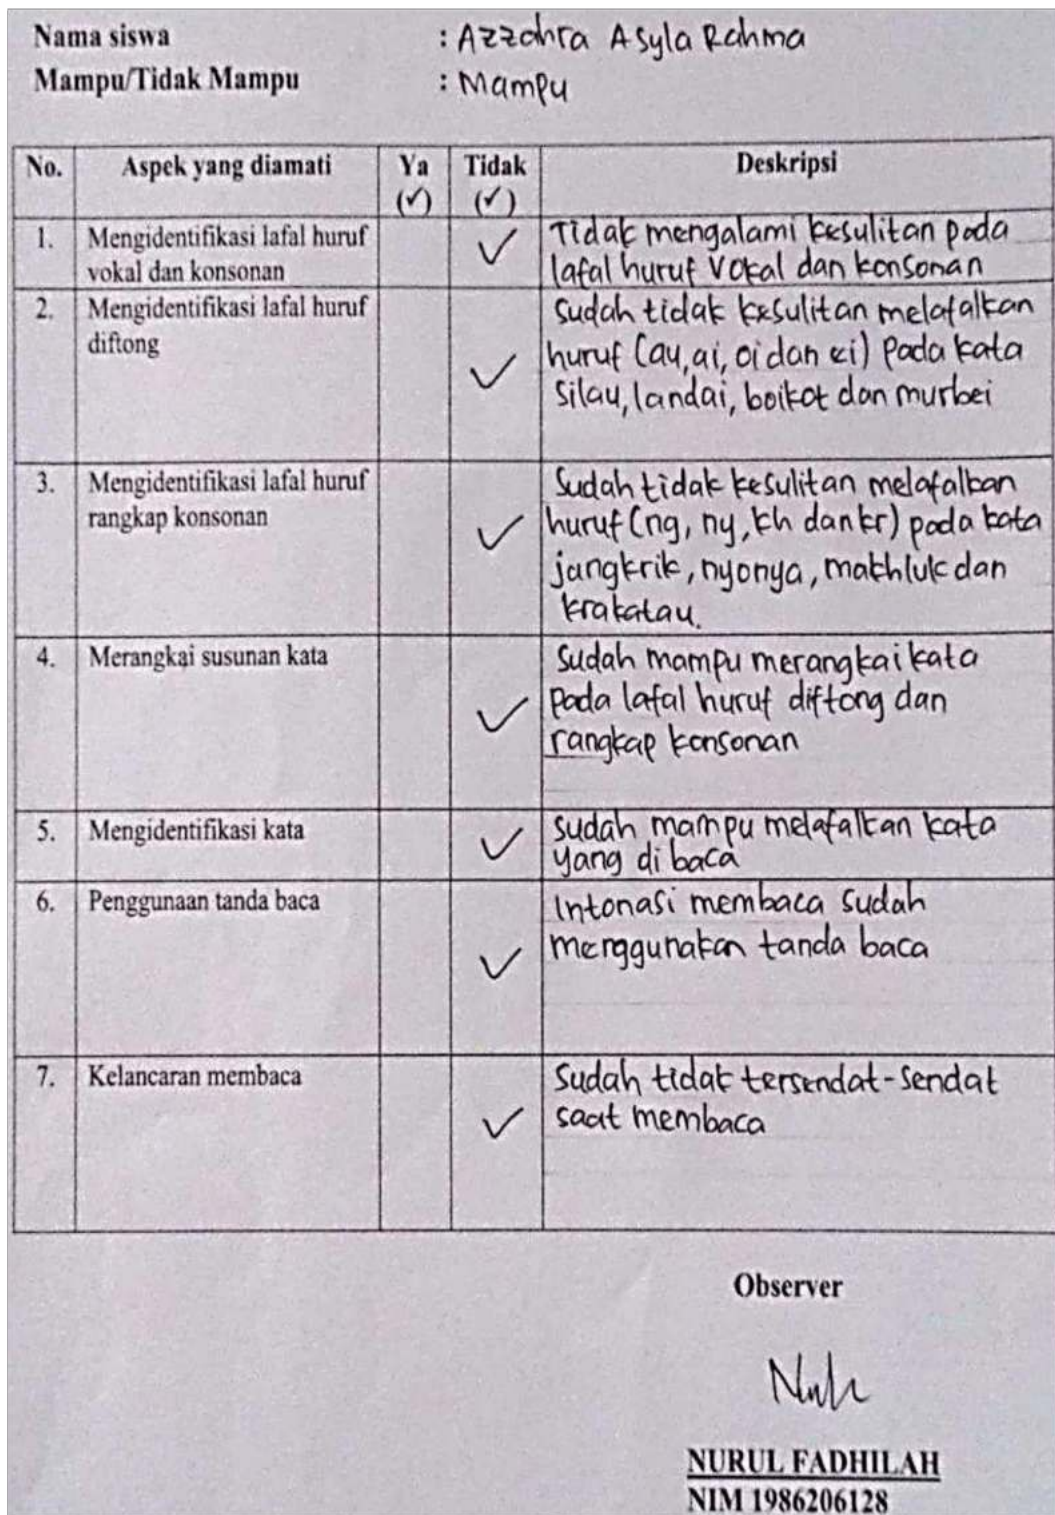 Nama siswa : Azzahra Asyla Rahma
Mampu/Tidak Mampu : Mampu
No. Aspek yang diamati Ya Tidak Deskripsi
(✓) (✓)
1. Mengidentifikasi lafal huruf ✓ Tidak mengalami kesulitan pada
vokal dan konsonan lafal huruf vokal dan konsonan
2. Mengidentifikasi lafal huruf Sudah tidak kesulitan melafalkan
diftong ✓ huruf (au, ai, oi dan ei) pada kata
silau, landai, boikot dan murbei
3. Mengidentifikasi lafal huruf Sudah tidak kesulitan melafalkan
rangkap konsonan ✓ huruf (ng, ny, kh dan kr) pada kata
jangkrik, nyonya, makhluk dan
krakatau.
4. Merangkai susunan kata Sudah mampu merangkai kata
✓ pada lafal huruf diftong dan
rangkap konsonan
5. Mengidentifikasi kata ✓ Sudah mampu melafalkan kata
yang di baca
6. Penggunaan tanda baca Intonasi membaca sudah
✓ menggunakan tanda baca
7. Kelancaran membaca Sudah tidak tersendat-sendat
✓ saat membaca
Observer
NURUL FADHILAH
NIM 1986206128